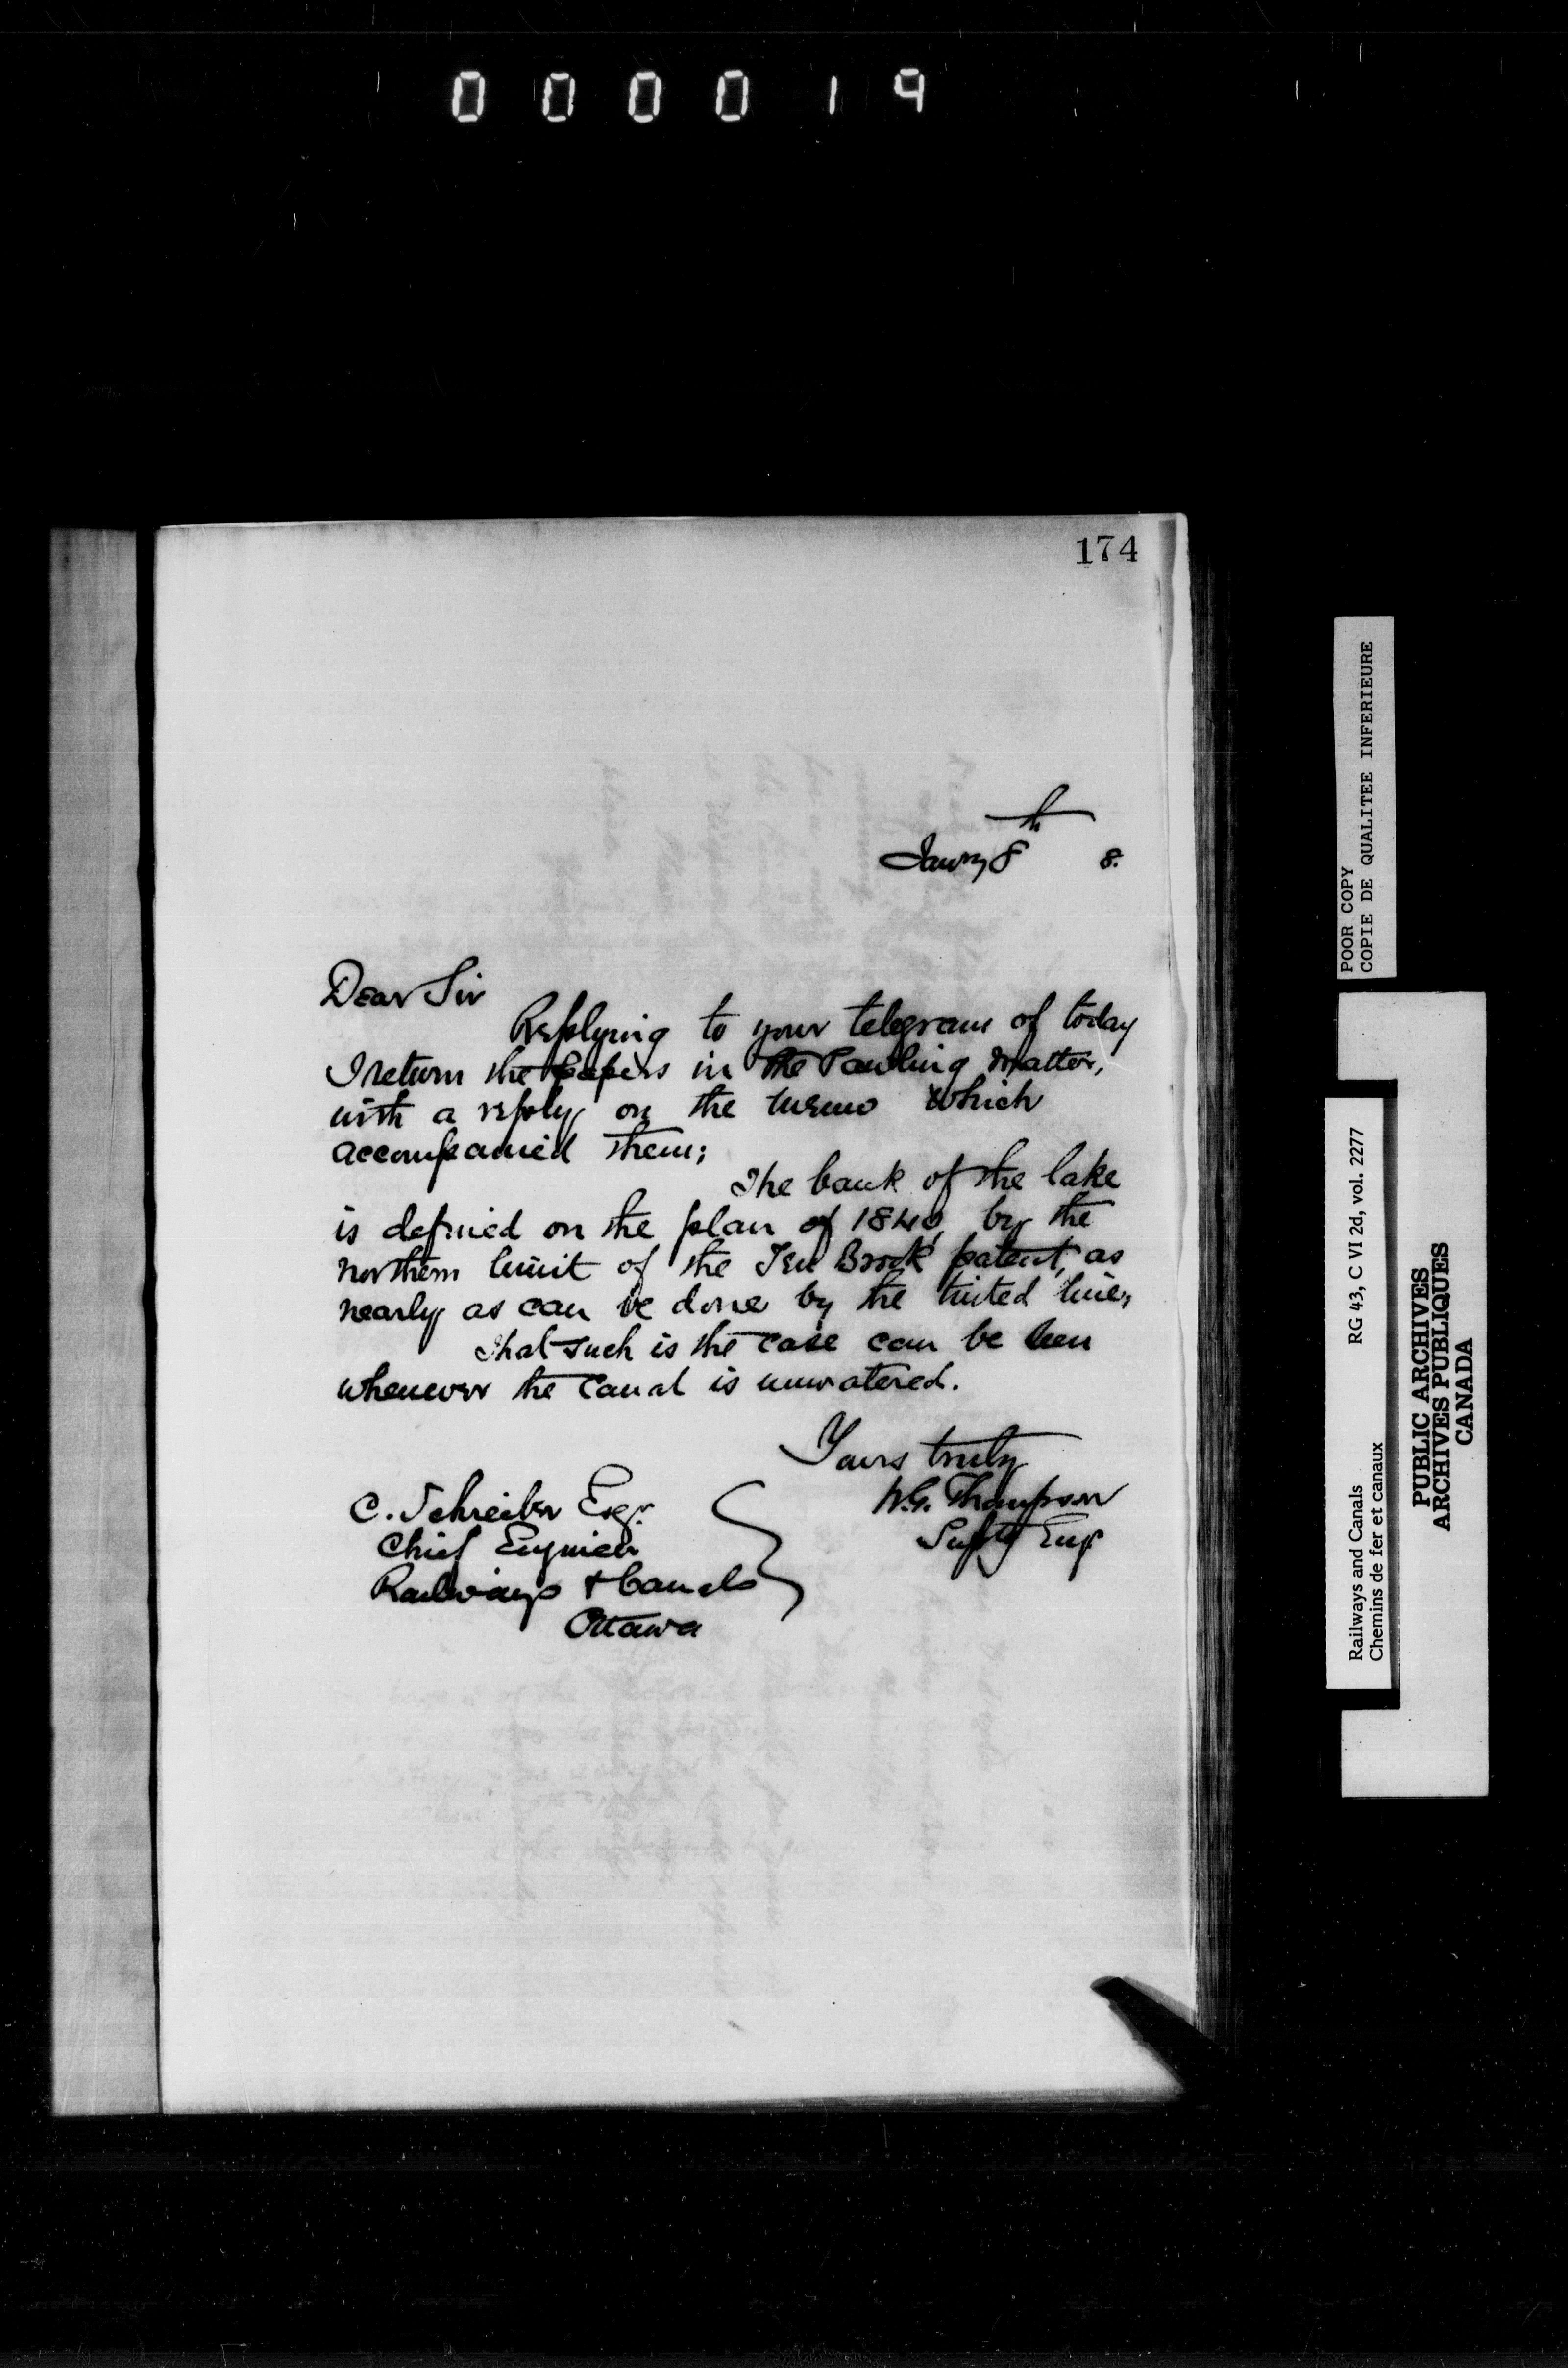 000019
174
Janry 8th 8.
Dear Sir
Replying to your telegram of today
I return the papers in the Pawling matter,
with a reply on the memo which
accompanied them;
The bank of the lake
is defined on the plan of 1840, by the
northern limit of the Ten Brock patent, as
nearly as can be done by the tinted line,
That such is the case can be seen
whenever the Canal is unwatered.
Yours truly
W.G. Thompson
Suptg Eng
C. Schreiber Esqr.
Chief Engineer
Railways & Canals
Ottawa
POOR COPY
COPIE DE QUALITEE INFERIEURE
RG 43, C VI 2d, vol. 2277
Railways and Canals
Chemins de fer et canaux
PUBLIC ARCHIVES
ARCHIVES PUBLIQUES
CANADA